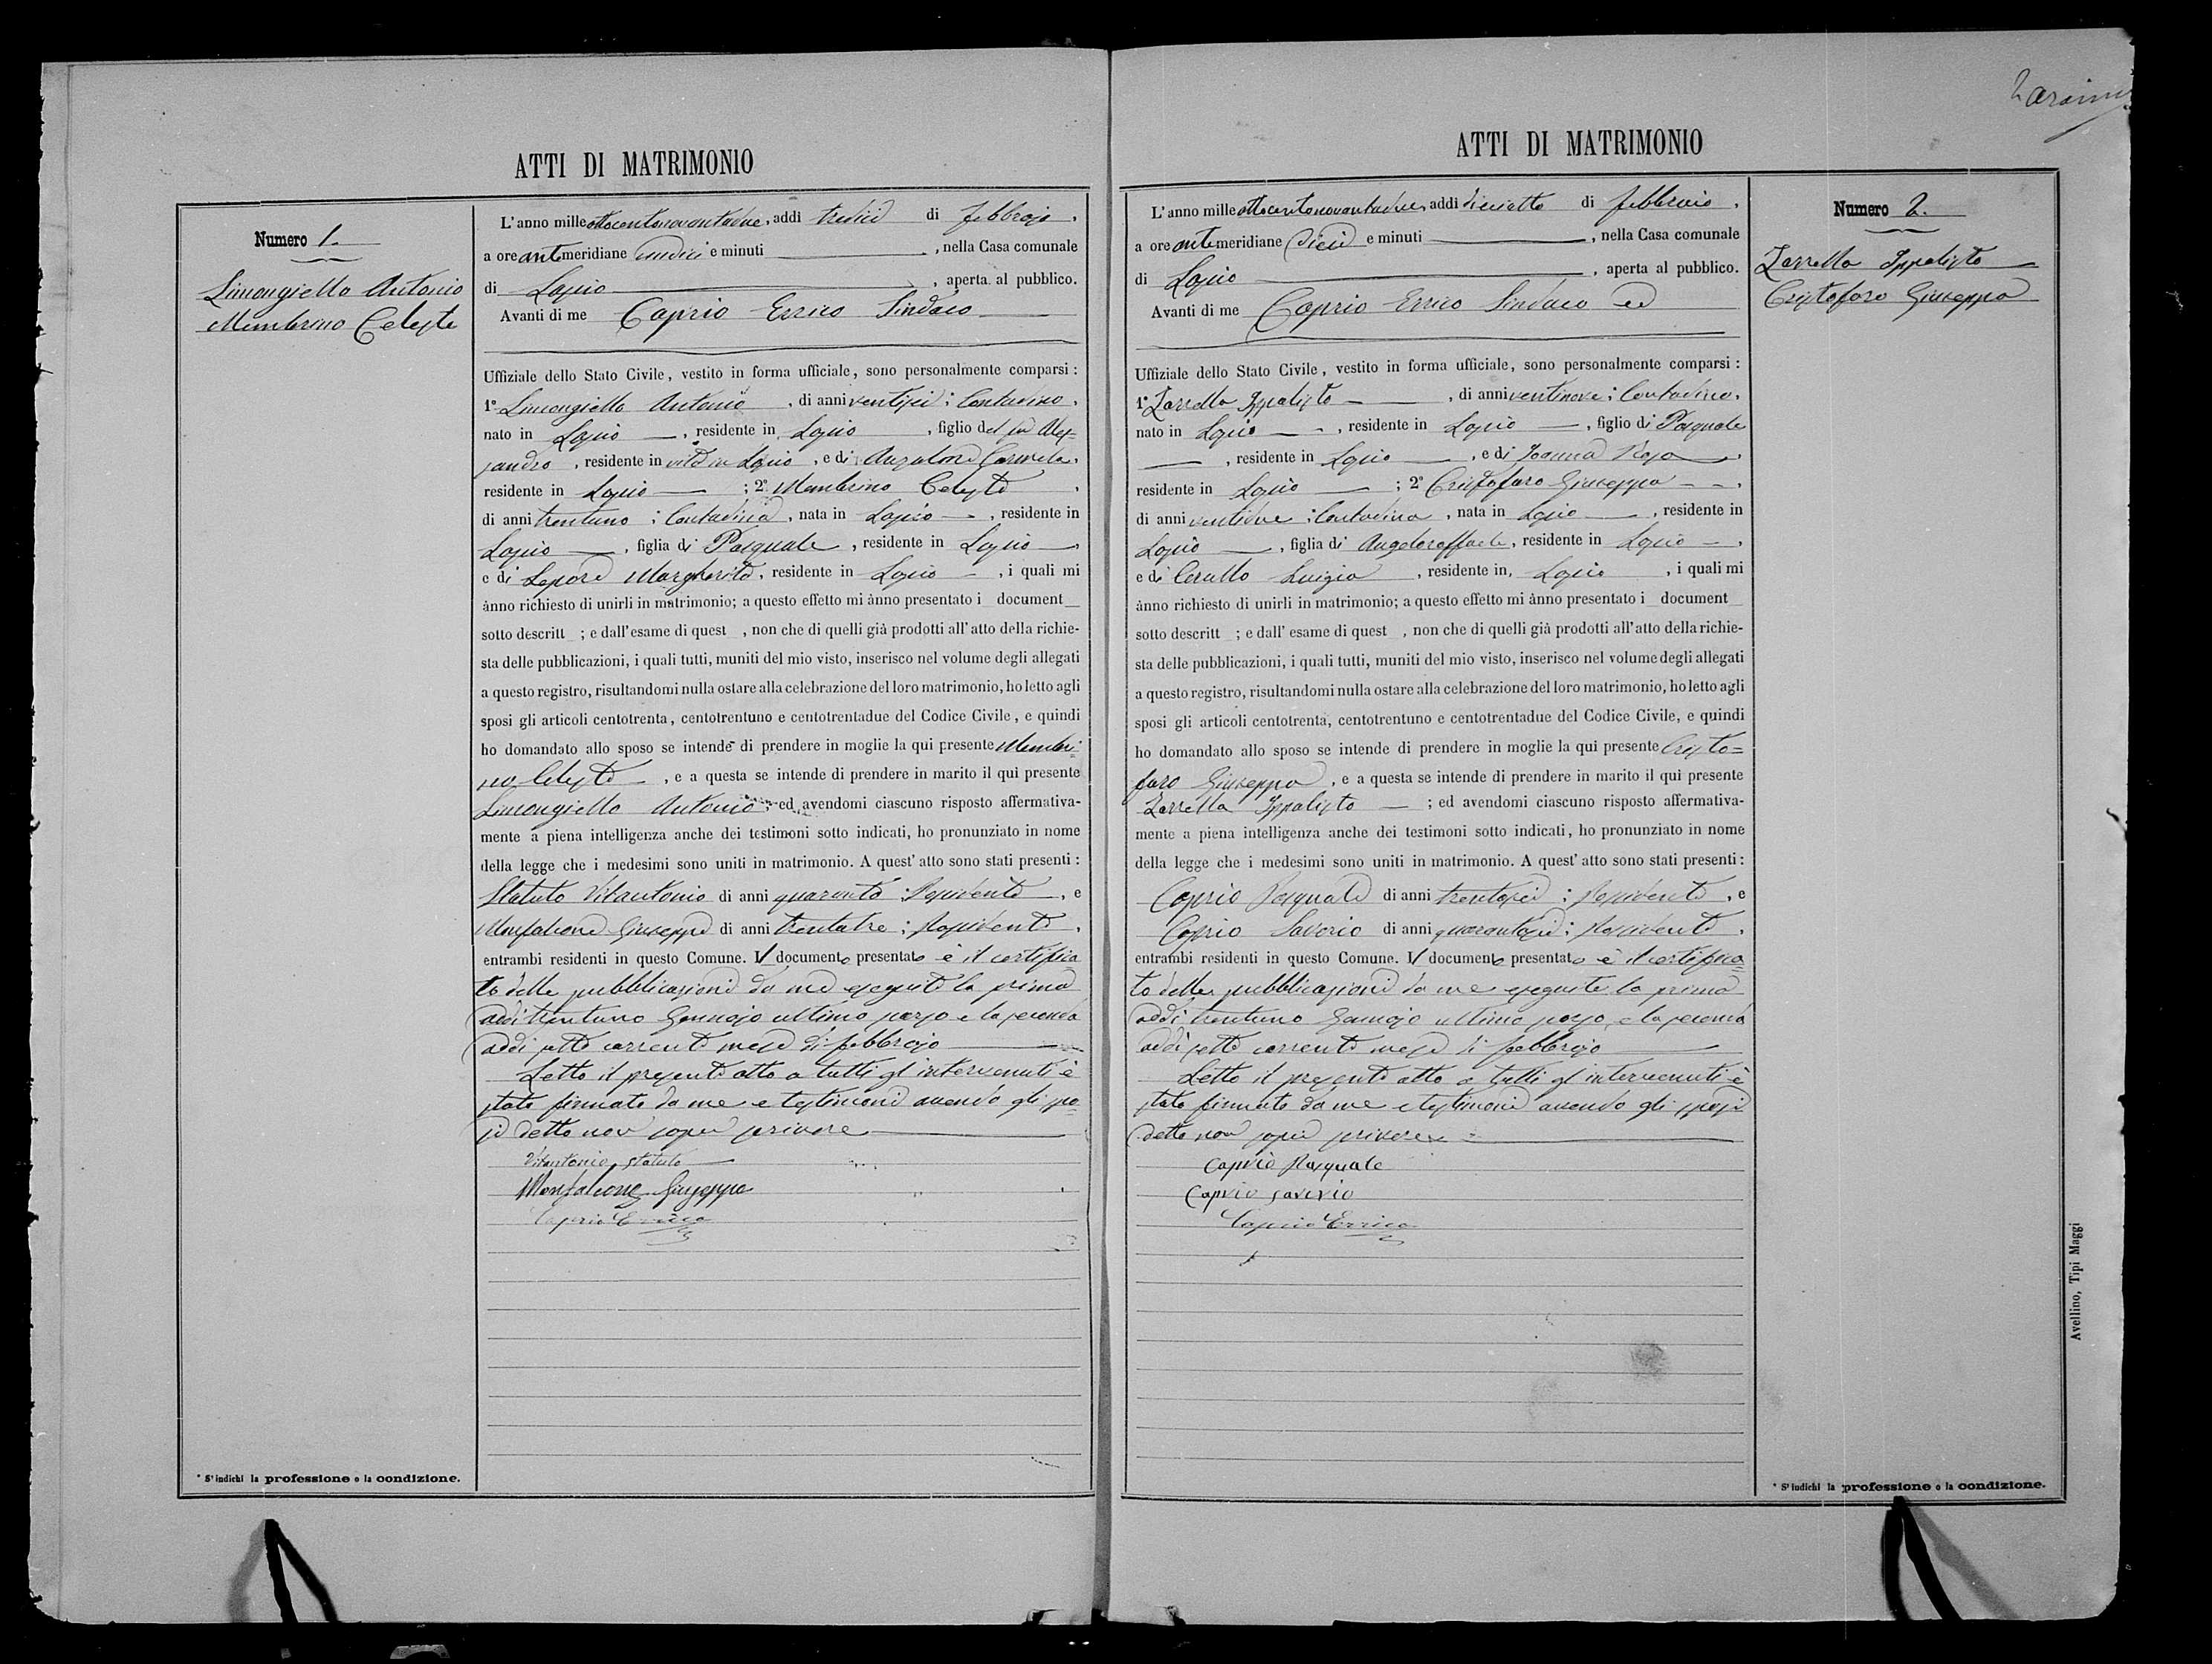 ATTI DI MATRIMONIO
Numero 1.
Limongiello Antonio
Membrino Celeste
L'anno mille ottocentonovantadue, addì tredici di febbrajo,
a ore antimeridiane undici e minuti , nella Casa comunale
di Lapio , aperta al pubblico.
Avanti di me Caprio Errico Sindaco
Uffiziale dello Stato Civile, vestito in forma ufficiale, sono personalmente comparsi:
1° Limongiello Antonio , di anni ventisei; Contadino,
nato in Lapio , residente in Lapio , figlio del fu Ales=
sandro , residente in vita in Lapio , e di Anzalone Carmela,
residente in Lapio ; 2° Membrino Celeste ,
di anni trentuno ; Contadina , nata in Lapio , residente in
Lapio , figlia di Pasquale , residente in Lapio ,
e di Lepore Margherita, residente in Lapio , i quali mi
ànno richiesto di unirli in matrimonio; a questo effetto mi ànno presentato i document
sotto descritt ; e dall'esame di quest , non che di quelli già prodotti all'atto della richie-
sta delle pubblicazioni, i quali tutti, muniti del mio visto, inserisco nel volume degli allegati
a questo registro, risultandomi nulla ostare alla celebrazione del loro matrimonio, ho letto agli
sposi gli articoli centotrenta, centotrentuno e centotrentadue del Codice Civile, e quindi
ho domandato allo sposo se intende di prendere in moglie la qui presente Membri=
no Celeste , e a questa se intende di prendere in marito il qui presente
Limongiello Antonio ; ed avendomi ciascuno risposto affermativa-
mente a piena intelligenza anche dei testimoni sotto indicati, ho pronunziato in nome
della legge che i medesimi sono uniti in matrimonio. A quest'atto sono stati presenti:
Statuto Vitantonio di anni quaranta ; Possidente , e
Monfalcone Giuseppe di anni trentatre ; Possidente ,
entrambi residenti in questo Comune. Il documento presentato è il certifica
to delle pubblicazioni da me eseguite la prima
addì trentuno Gennajo ultimo passo e la seconda
addì sette corrente mese di febbrajo
Letto il presente atto a tutti gl'intervenuti è
stato firmato da me e testimoni avendo gli spo=
si detto non saper scrivere
Vitantonio Statuto
Monfalcone Giuseppe
Caprio Errico
* S'indichi la professione o la condizione.
ATTI DI MATRIMONIO
Numero 2.
Zarrella Ippolisto
Cristofaro Giuseppa
L'anno mille ottocentonovantadue, addì diciotto di febbraio,
a ore antimeridiane dieci e minuti , nella Casa comunale
di Lapio , aperta al pubblico.
Avanti di me Caprio Errico Sindaco ed
Uffiziale dello Stato Civile, vestito in forma ufficiale, sono personalmente comparsi:
1° Zarrella Ippolisto , di anni ventinove; Contadino,
nato in Lapio , residente in Lapio , figlio di Pasquale
, residente in Lapio , e di Ioanna Rosa ,
residente in Lapio ; 2° Cristofaro Giuseppa ,
di anni ventidue ; Contadina , nata in Lapio , residente in
Lapio , figlia di Angeloraffaele, residente in Lapio ,
e di Cerullo Luigia , residente in, Lapio , i quali mi
ànno richiesto di unirli in matrimonio; a questo effetto mi ànno presentato i document
sotto descritt ; e dall'esame di quest , non che di quelli già prodotti all'atto della richie-
sta delle pubblicazioni, i quali tutti, muniti del mio visto, inserisco nel volume degli allegati
a questo registro, risultandomi nulla ostare alla celebrazione del loro matrimonio, ho letto agli
sposi gli articoli centotrenta, centotrentuno e centotrentadue del Codice Civile, e quindi
ho domandato allo sposo se intende di prendere in moglie la qui presente Cristo=
faro Giuseppa , e a questa se intende di prendere in marito il qui presente
Zarrella Ippolisto ; ed avendomi ciascuno risposto affermativa-
mente a piena intelligenza anche dei testimoni sotto indicati, ho pronunziato in nome
della legge che i medesimi sono uniti in matrimonio. A quest'atto sono stati presenti:
Caprio Pasquale di anni trentasei ; Possidente , e
Caprio Saverio di anni quarantasei ; Possidente ,
entrambi residenti in questo Comune. Il documento presentato è il certifica=
to delle pubblicazioni da me eseguite la prima
addì trentuno Gennajo ultimo passo, e la seconda
addì sette corrente mese di febbrajo
Letto il presente atto a tutti gl'intervenuti è
stato firmato da me e testimoni avendo gli sposi
detto non saper scrivere
Caprio Pasquale
Caprio Saverio
Caprio Errico
* S'indichi la professione o la condizione.
Avellino, Tipi Maggi